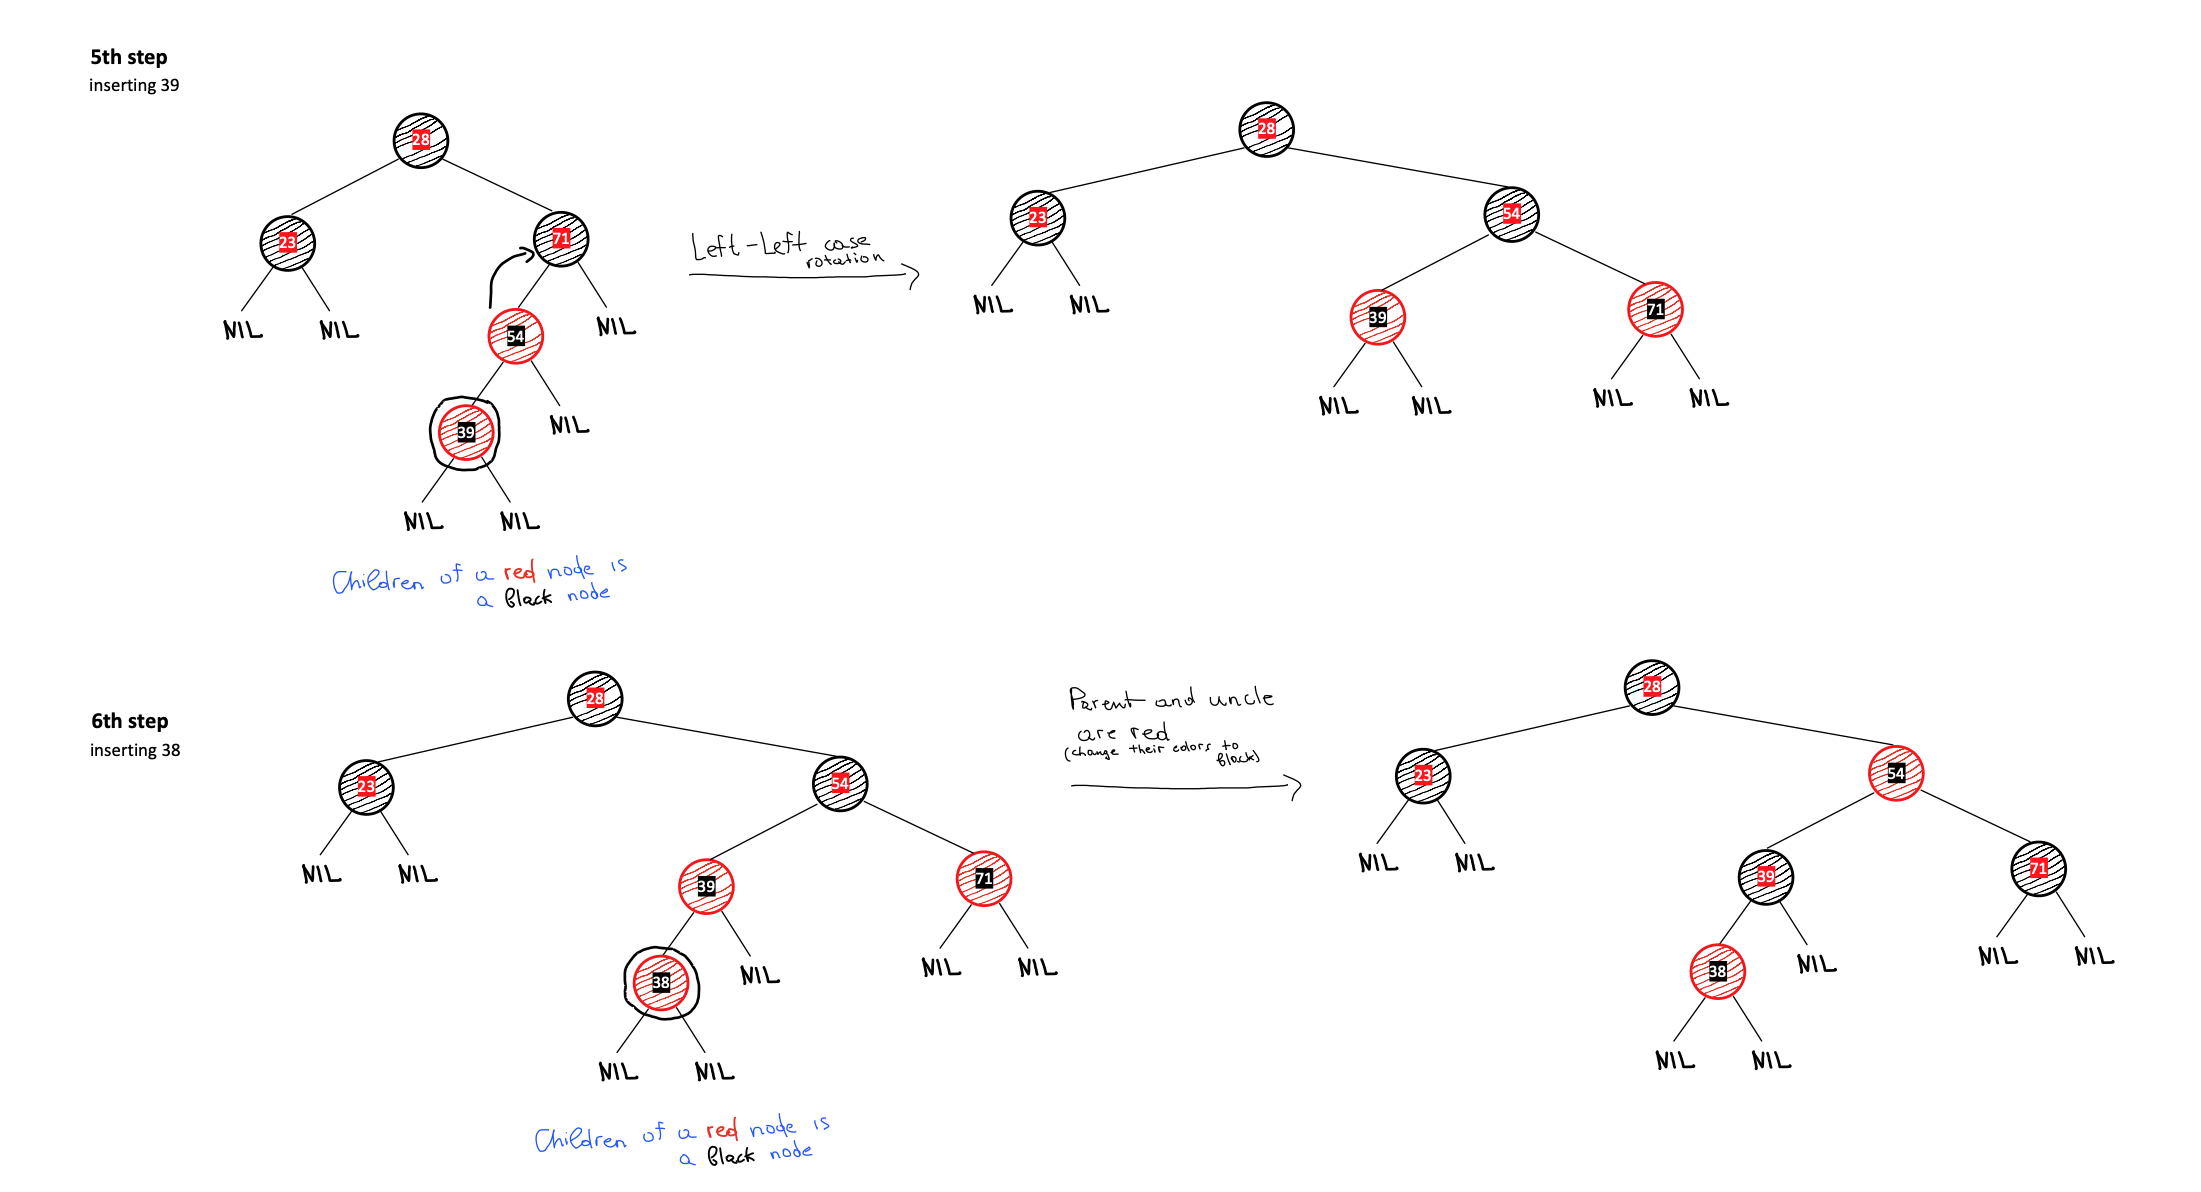 5th step
inserting 39
28
23
71
NIL
NIL
54
NIL
39
NIL
NIL
NIL
Children of a red node is
a black node
Left-Left case
rotation
28
23
54
NIL
NIL
39
71
NIL
NIL
NIL
NIL
6th step
inserting 38
28
23
54
NIL
NIL
39
71
38
NIL
NIL
NIL
NIL
NIL
Children of a red node is
a black node
Parent and uncle
are red
(change their colors to
black)
28
23
54
NIL
NIL
39
71
38
NIL
NIL
NIL
NIL
NIL